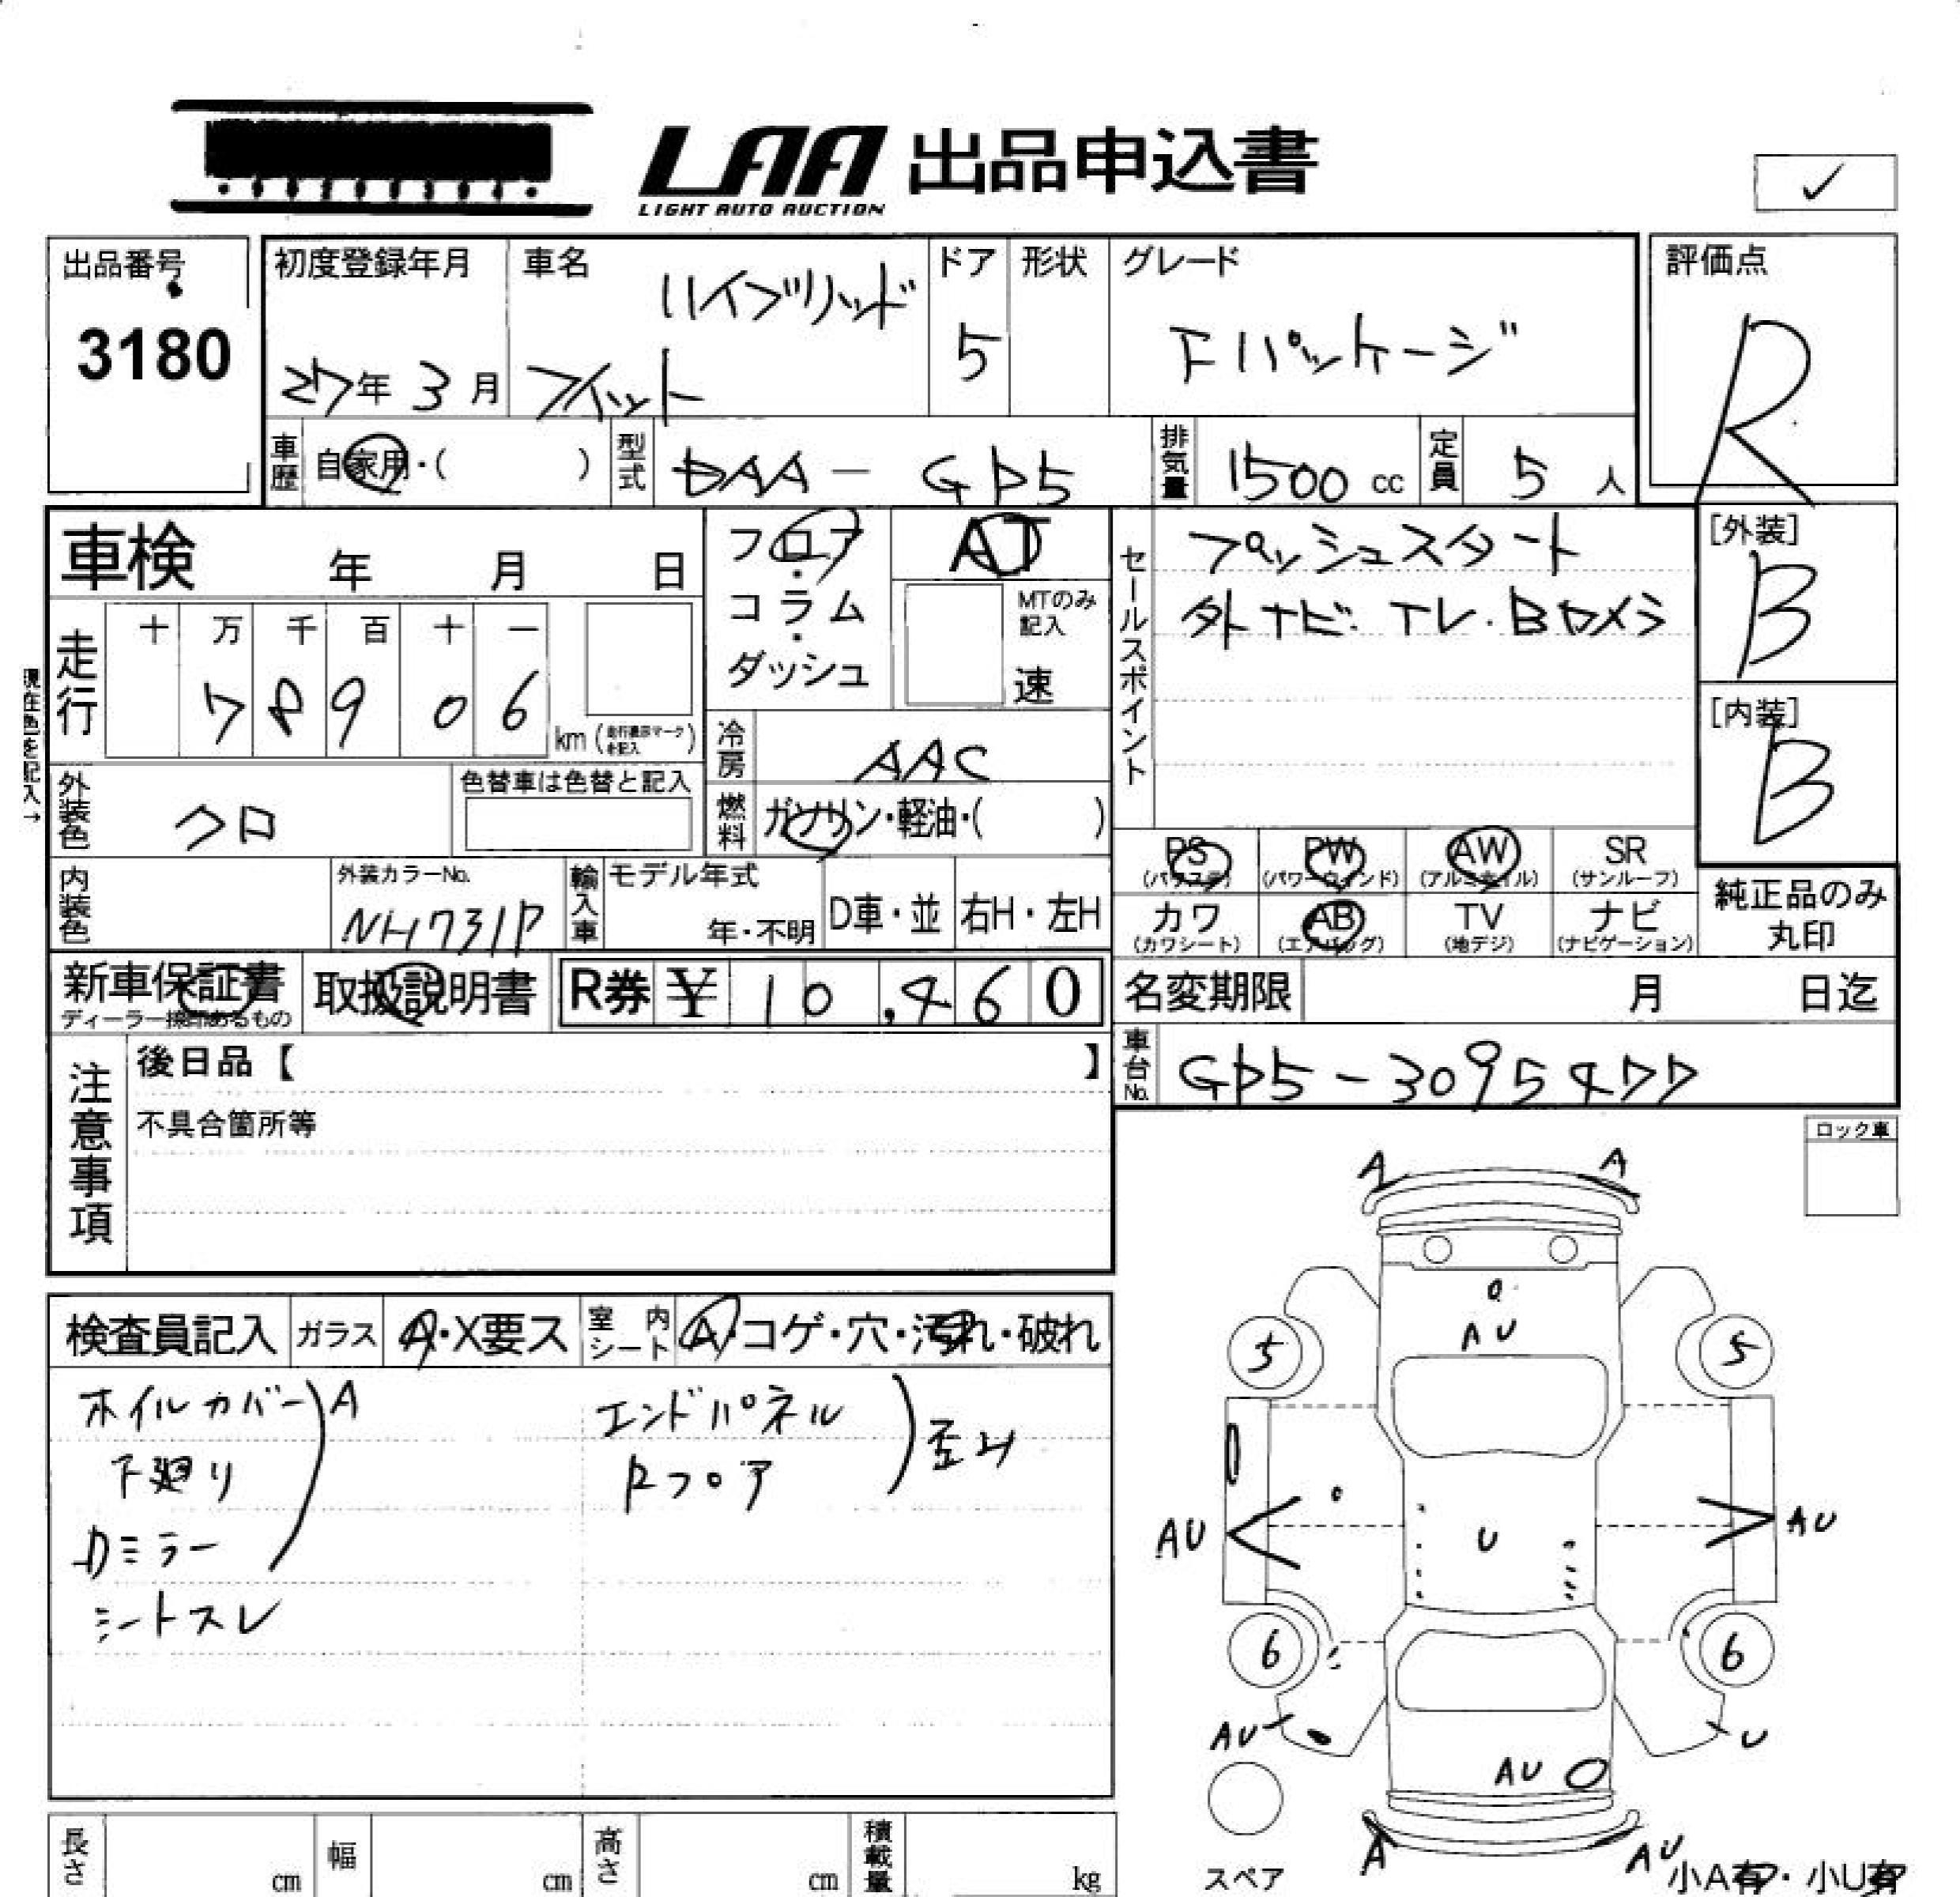 LAA 出品申込書
LIGHT AUTO AUCTION
✓
出品番号
3180
初度登録年月
27年 3月
車名
ハイブリッド
フィット
ドア
5
形状
グレード
Fパッケージ
評価点
R
車歴
自家用・( )
型式
DAA-GP5
排気量
1500 cc
定員
5 人
車検 年 月 日
フロア・コラム・ダッシュ
AT
MTのみ記入
速
セールスポイント
プッシュスタート
外ナビ・TV・Bカメラ
[外装]
B
[内装]
B
現在色を記入→
走行
十 万 千 百 十 一
7 8 9 0 6
km(走行表示マークを記入)
冷房
AAC
燃料
ガソリン・軽油・( )
外装色
クロ
色替車は色替と記入
内装色
外装カラーNo.
NH731P
輸入車
モデル年式
年・不明
D車・並
右H・左H
PS
(パワステ)
PW
(パワーウインド)
AW
(アルミホイル)
SR
(サンルーフ)
カワ
(カワシート)
AB
(エアバッグ)
TV
(地デジ)
ナビ
(ナビゲーション)
純正品のみ
丸印
新車保証書
ディーラー捺印あるもの
取扱説明書
R券 ¥ 10,460
名変期限 月 日迄
車台No.
GP5-3095477
注意事項
後日品【 】
不具合箇所等
ロック車
A A
AU
5 5
AU U AU
6 6
AU U
AU
A AU
スペア
小A有・小U有
検査員記入
ガラス
A・X要ス
室内シート
A・コゲ・穴・汚れ・破れ
ホイルカバー
下廻り
Dミラー
A
シートスレ
エンドパネル
Rフロア
歪み
長さ cm
幅 cm
高さ cm
積載量 kg